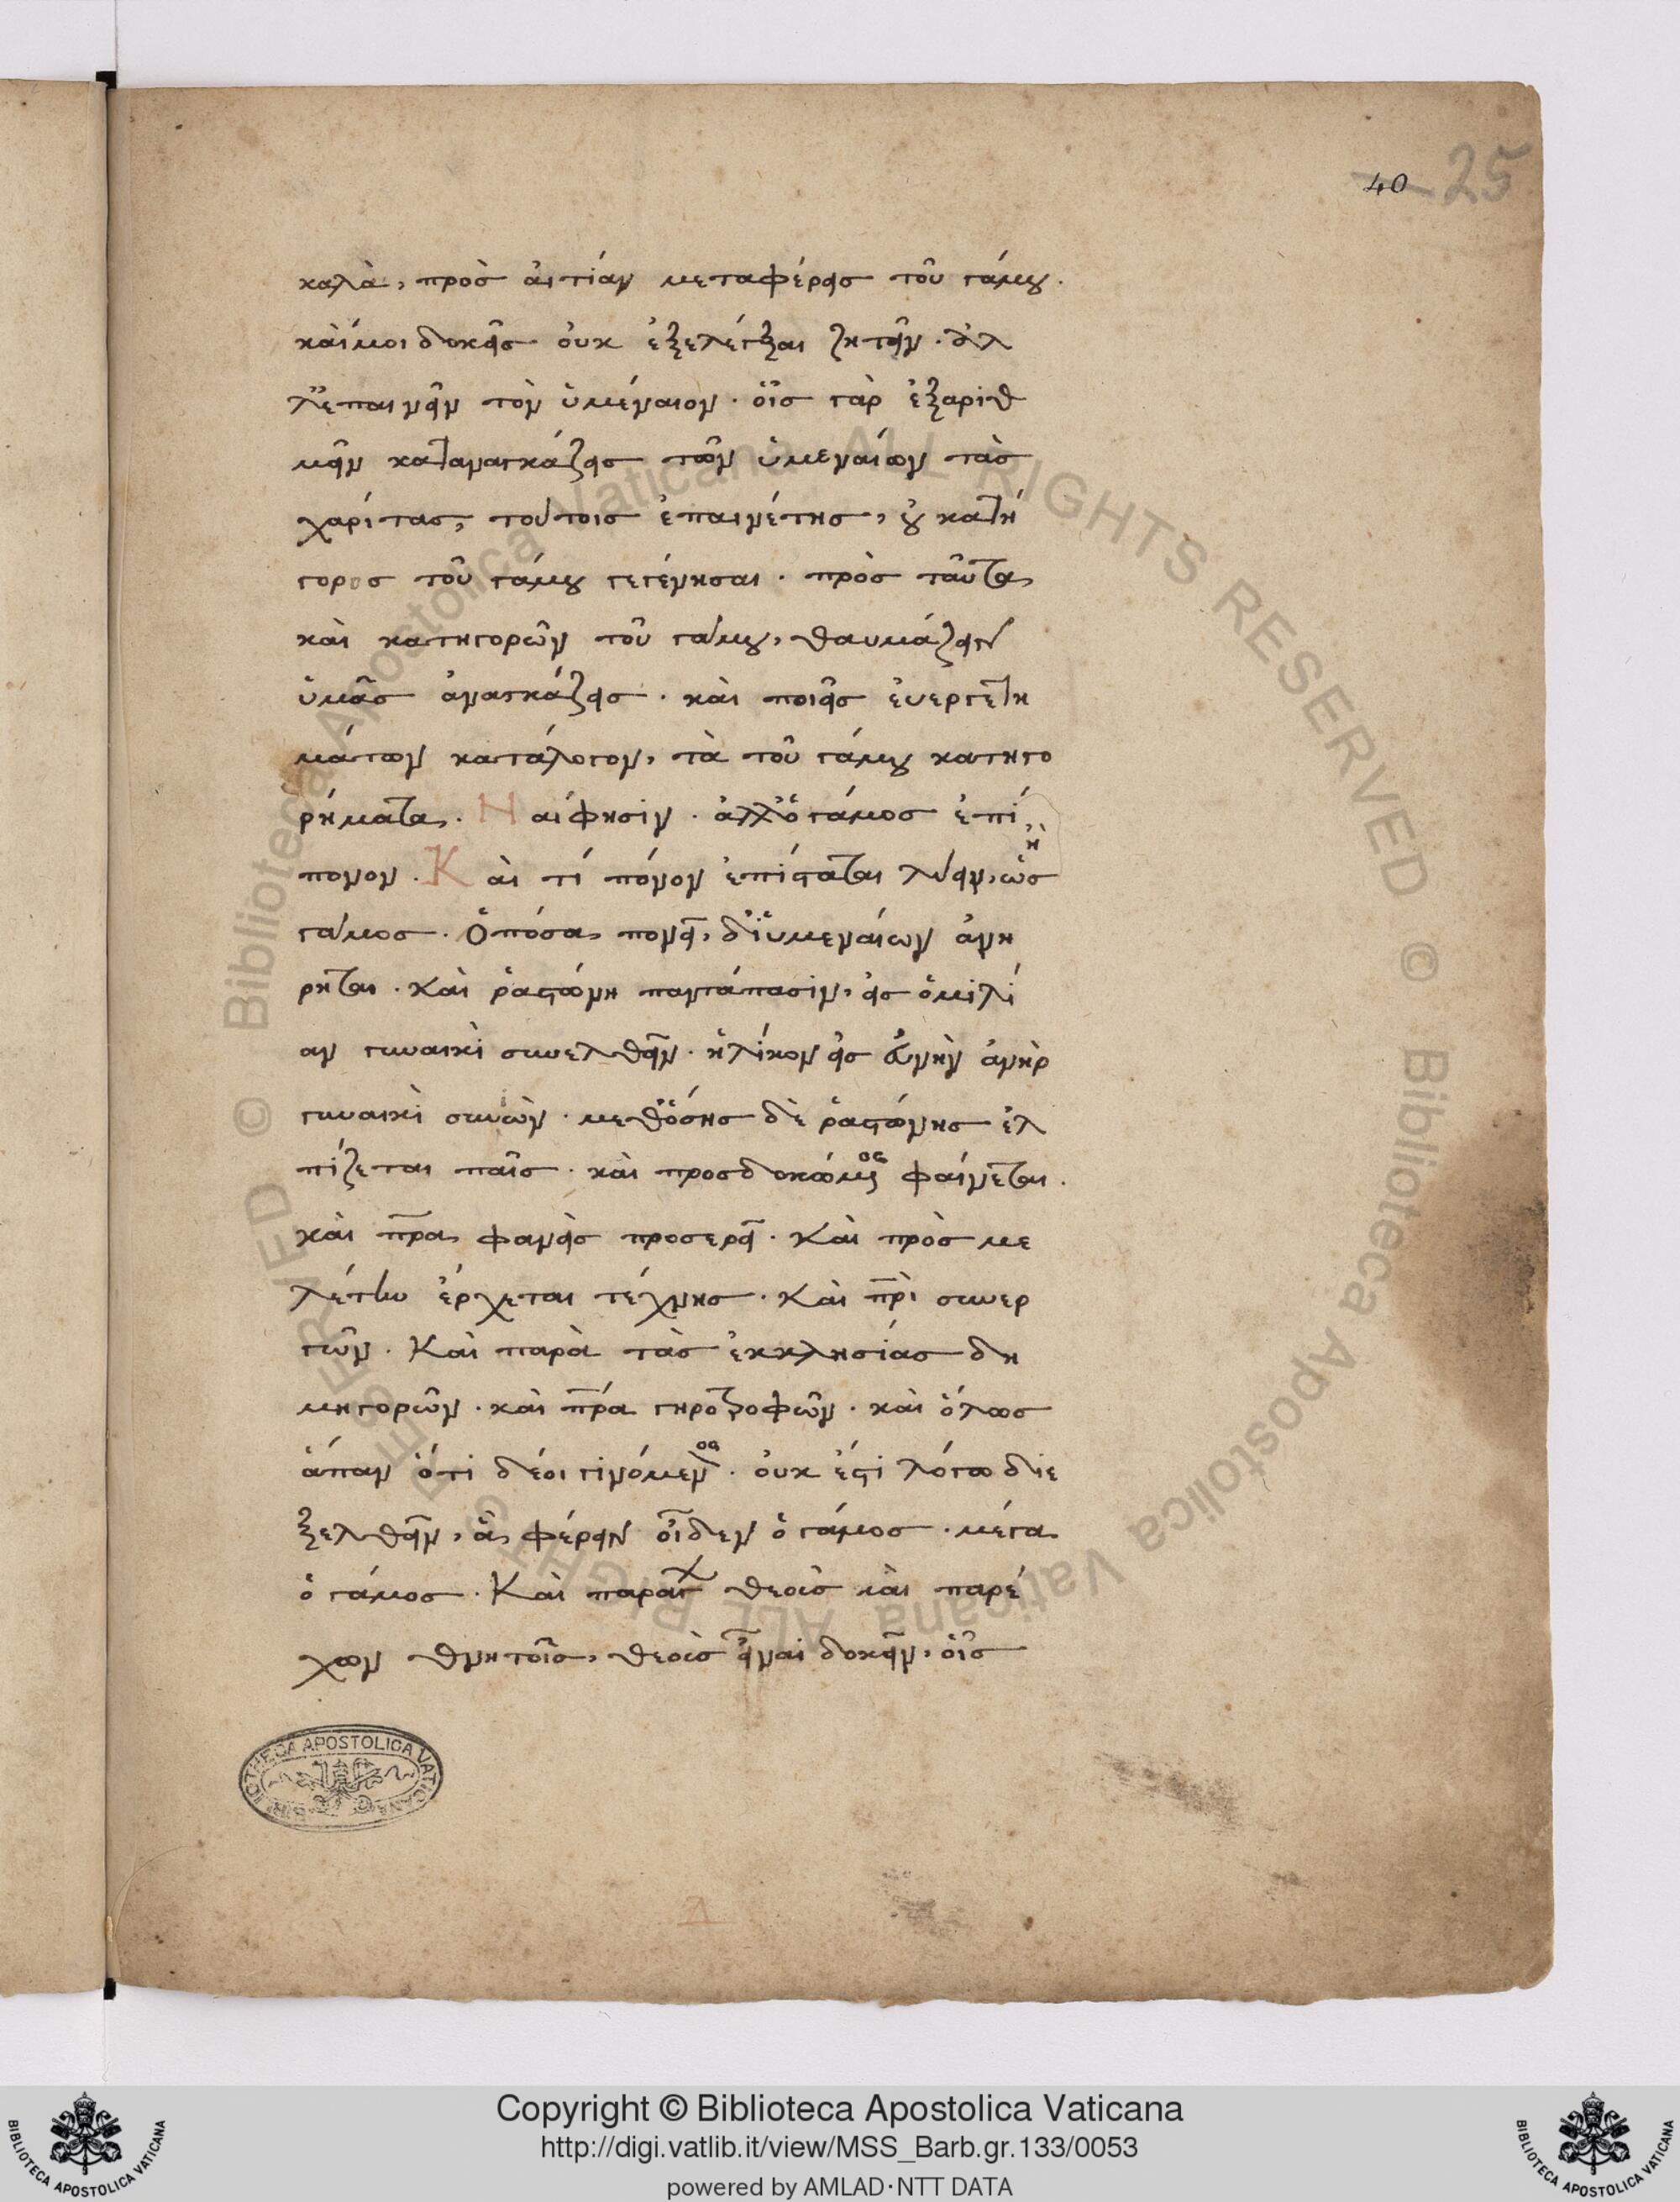 40 25
καλὰ, πρὸς αἰτίαν μεταφέρεις τοῦ γάμου.
καὶ μοι δοκεῖς οὐκ ἐξελέγξαι ζητεῖν. ἀλ
λ' ἐπαινεῖν τὸν ὑμέναιον. οἷς γὰρ ἐξαριθ
μεῖν καταναγκάζεις τῶν ὑμεναίων τὰς
χάριτας, τούτοις ἐπαινέτης, οὐ κατή
γορος τοῦ γάμου γεγένησαι. πρὸς ταῦτα,
καὶ κατηγορῶν τοῦ γάμου, θαυμάζειν
ὑμᾶς ἀναγκάζεις. καὶ ποιεῖς εὐεργετη
μάτων κατάλογον, τὰ τοῦ γάμου κατηγο
ρήματα. Ναί φησιν. ἀλλ' ὁ γάμος ἐπί
πονον. Καὶ τί πόνον ἐπίσταται λύειν, ὡς ἢ
γάμος. Ὁπόσα πονεῖ, δι' ὑμεναίων ἀνή
ρηται. Καὶ ῥαστώνη παντάπασιν, εἰς ὁμιλί
αν γυναικὶ συνελθεῖν. ἡλίκον εἰς εὐνὴν ἀνὴρ
γυναικὶ συνιών. μεθ' ὅσης δὲ ῥαστώνης ἐλ
πίζεται παῖς. καὶ προσδοκώμενος φαίνεται.
καὶ πατέρα φανεὶς προσερεῖ. Καὶ πρὸς με
λέτην ἔρχεται τέχνης. Καὶ πατρὶ συνερ
γῶν. Καὶ παρὰ τὰς ἐκκλησίας δη
μηγορῶν. καὶ πατέρα γηροτροφῶν. καὶ ὅλως
ἅπαν ὅτι δέοι γινόμενος. οὐκ ἔστι λόγω διε
ξελθεῖν, ἃ φέρειν οἶδεν ὁ γάμος. μέγα
ὁ γάμος. Καὶ παράγων θεοὺς καὶ παρέ
χων θνητοῖς, θεοὺς εἶναι δοκεῖν, οἷς
BIBLIOTHECA APOSTOLICA VATICANA
© Biblioteca Apostolica Vaticana ALL RIGHTS RESERVED © Biblioteca Apostolica Vaticana ALL RIGHTS RESERVED
Copyright © Biblioteca Apostolica Vaticana
http://digi.vatlib.it/view/MSS_Barb.gr.133/0053
powered by AMLAD·NTT DATA
BIBLIOTECA APOSTOLICA VATICANA
BIBLIOTECA APOSTOLICA VATICANA